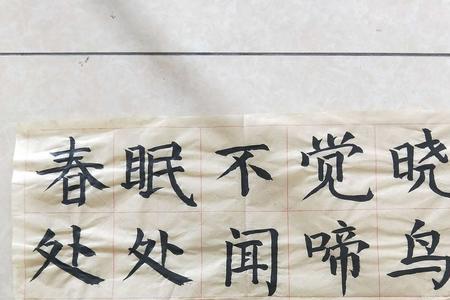 春眠不觉晓
处处闻啼鸟